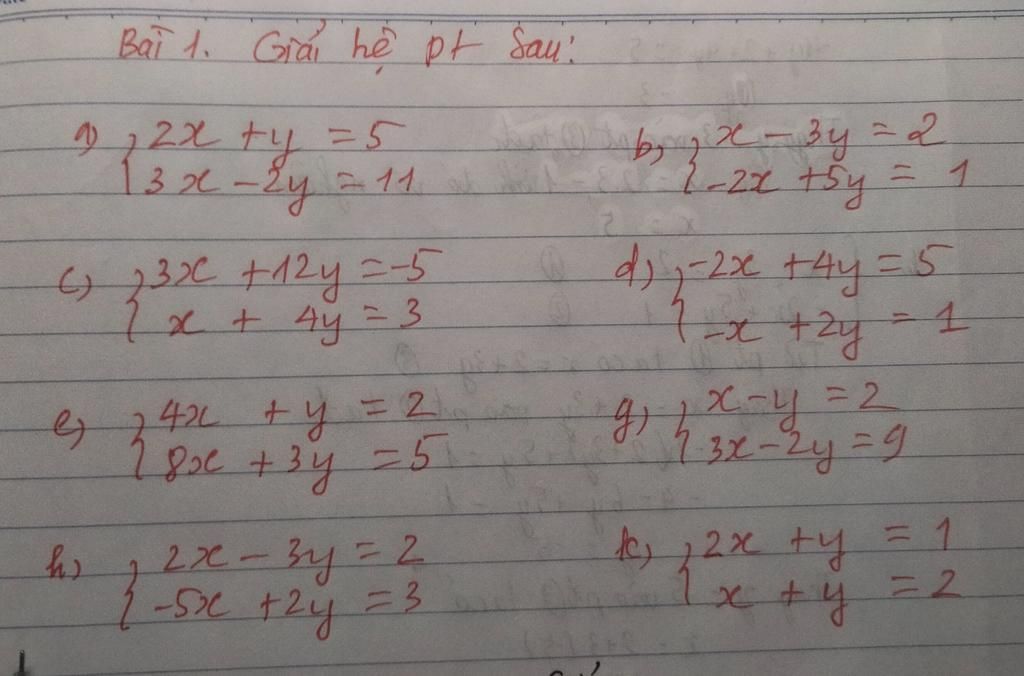 Bài 1. Giải hệ pt sau:
a) { 2x + y = 5
3x - 2y = 11
b) { x - 3y = 2
-2x + 5y = 1
c) { 3x + 12y = -5
x + 4y = 3
d) { -2x + 4y = 5
-x + 2y = 1
e) { 4x + y = 2
8x + 3y = 5
g) { x - y = 2
3x - 2y = 9
h) { 2x - 3y = 2
-5x + 2y = 3
k) { 2x + y = 1
x + y = 2